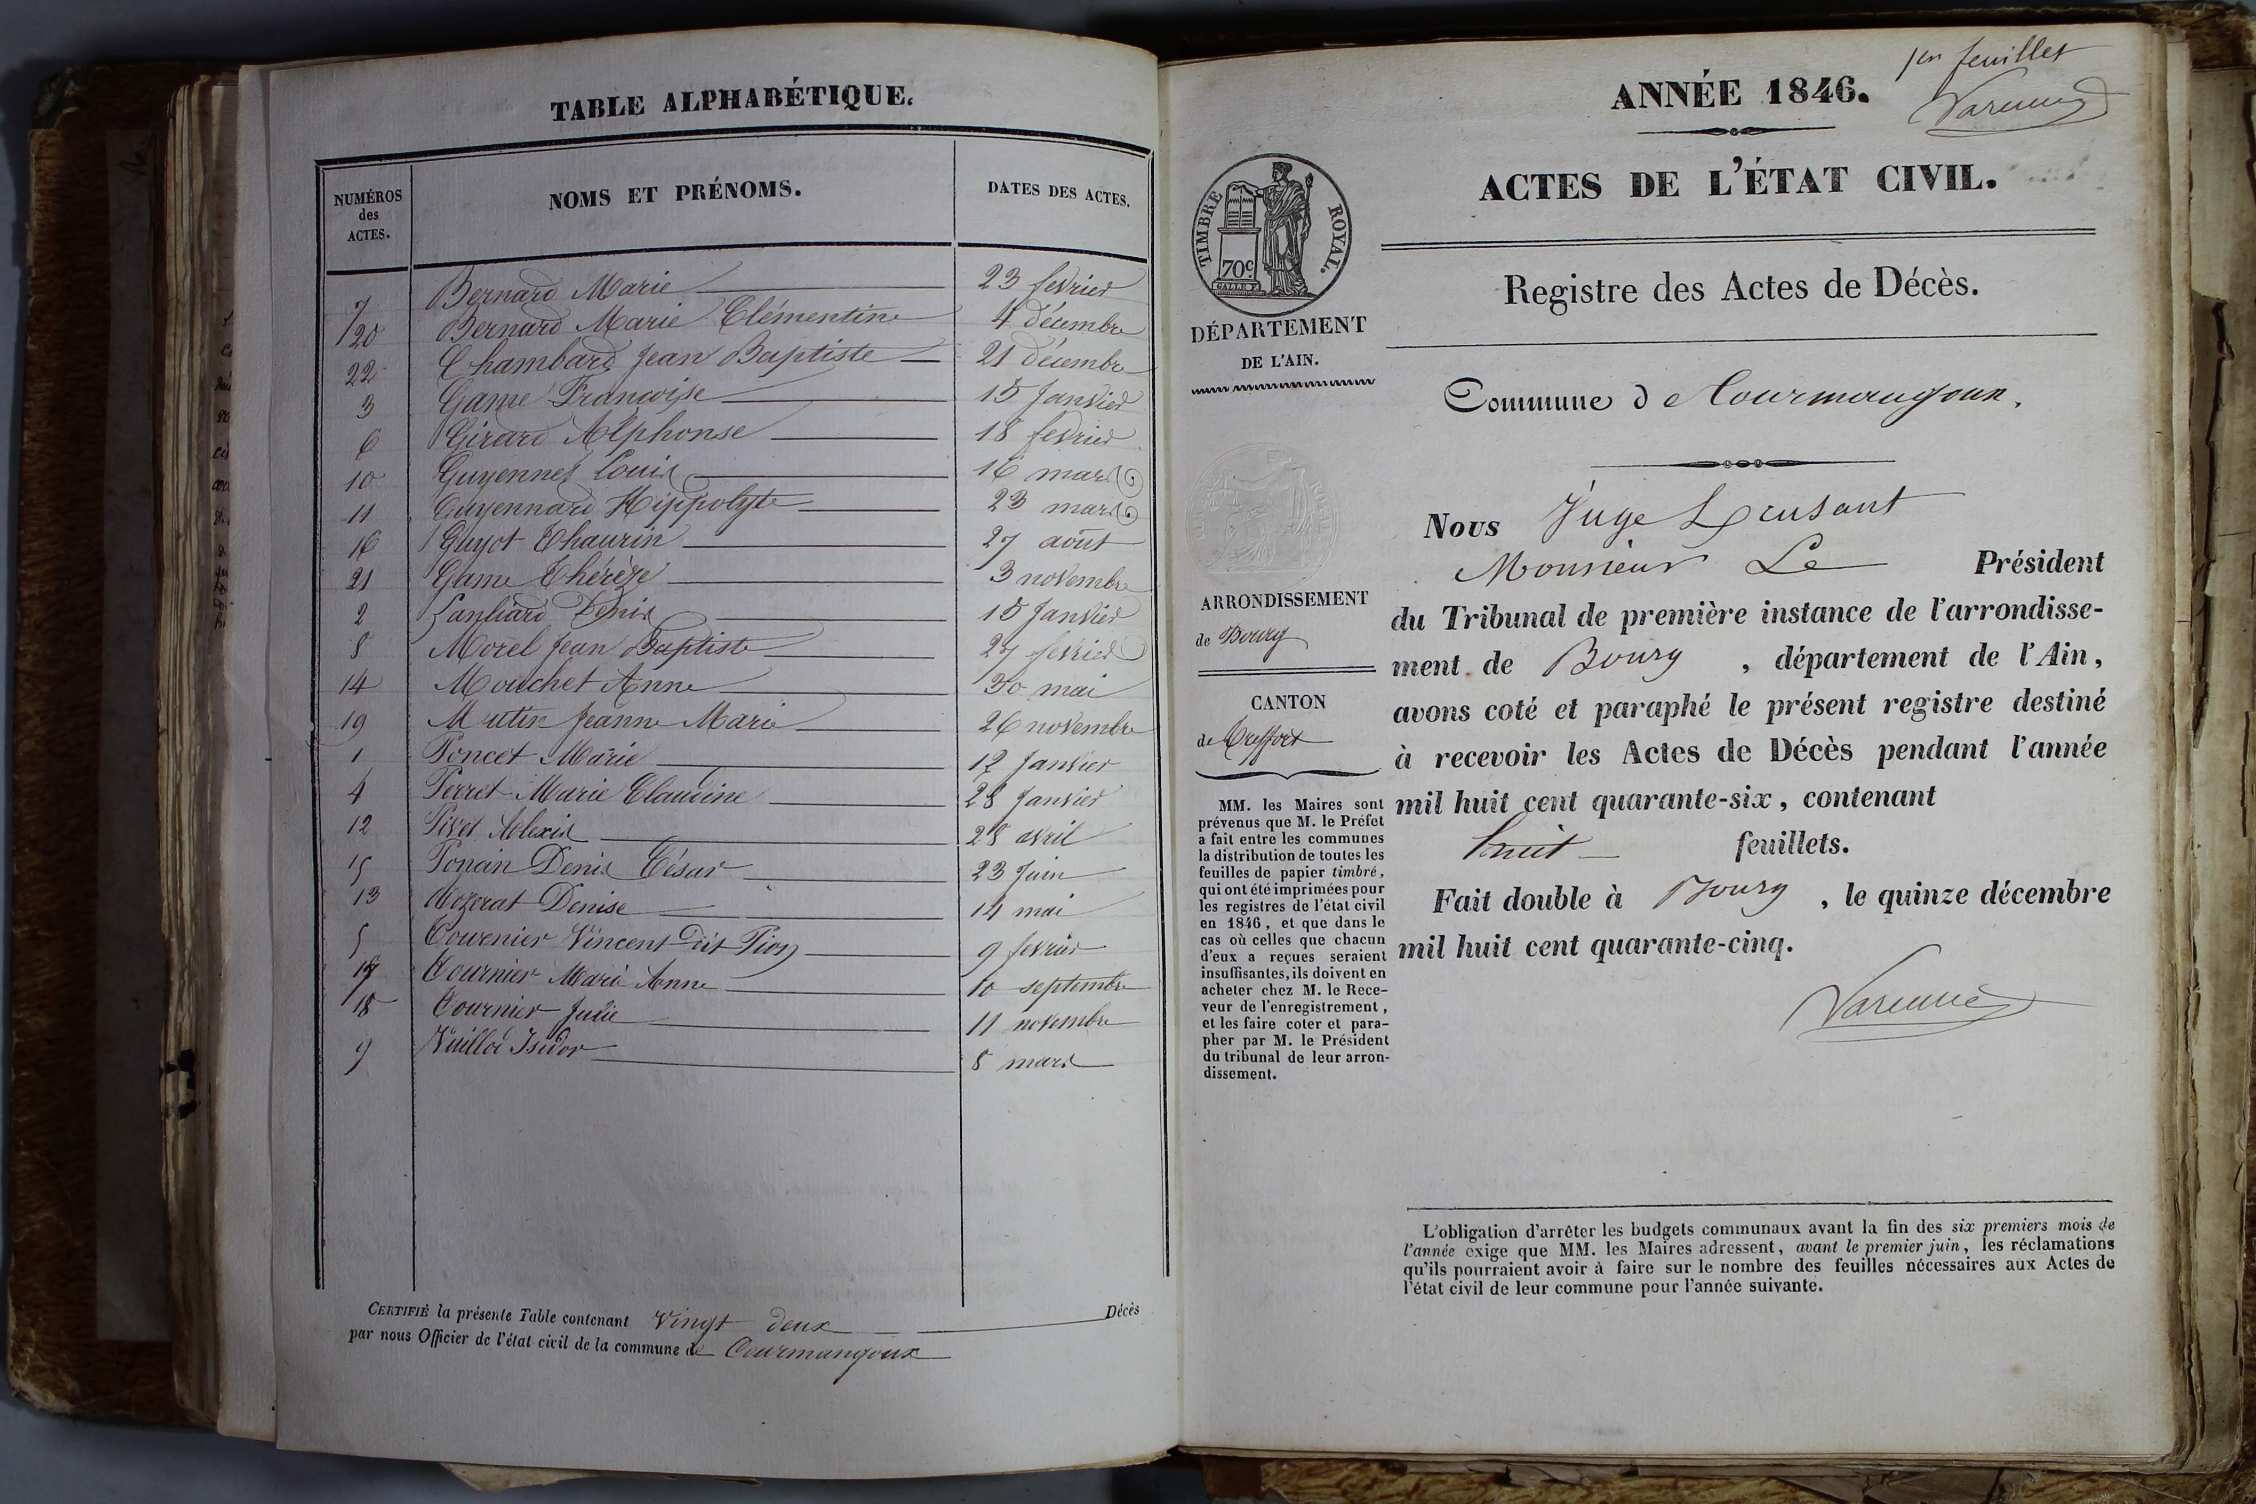 TABLE ALPHABÉTIQUE.
NUMÉROS des ACTES. NOMS ET PRÉNOMS. DATES DES ACTES.
7 Bernard Marie 23 fevrier
20 Bernard Marie Clémentine 4 décembre
22 Chambard Jean Baptiste 21 décembre
3 Game Françoise 15 Janvier
6 Girard Alphonse 18 fevrier
10 Guyennet Louis 16 mars
11 Guyennard Hippolyte 23 mars
16 Guyot Thaurin 27 août
21 Game Thérèze 3 novembre
2 Lanliard Denis 15 Janvier
8 Morel Jean Baptiste 27 fevrier
14 Mouchet Anne 30 mai
19 Mutin Jeanne Marie 26 novembre
1 Poncet Marie 12 Janvier
4 Perret Marie Claudine 28 Janvier
12 Pivet Alexis 28 avril
15 Ponain Denis César 23 Juin
13 Denise 14 mai
5 Tournier Vincent dit Pion 9 fevrier
17 Tournier Marie Anne 10 septembre
18 Tournier Julie 11 novembre
9 Vuillod Isidor 8 mars
CERTIFIÉ la présente Table contenant Vingt deux Décès
par nous Officier de l'état civil de la commune de Courmangoux
1er feuillet
ANNÉE 1846.
ACTES DE L'ÉTAT CIVIL.
TIMBRE ROYAL.
70c
Registre des Actes de Décès.
DÉPARTEMENT
DE L'AIN.
Commune de Courmangoux.
ARRONDISSEMENT
de Bourg
CANTON
de Treffort
MM. les Maires sont
prévenus que M. le Préfet
a fait entre les communes
la distribution de toutes les
feuilles de papier timbré,
qui ont été imprimées pour
les registres de l'état civil
en 1846, et que dans le
cas où celles que chacun
d'eux a reçues seraient
insuffisantes, ils doivent en
acheter chez M. le Rece-
veur de l'enregistrement,
et les faire coter et para-
pher par M. le Président
du tribunal de leur arron-
dissement.
Nous Juge
Monsieur Le Président
du Tribunal de première instance de l'arrondisse-
ment de Bourg, département de l'Ain,
avons coté et paraphé le présent registre destiné
à recevoir les Actes de Décès pendant l'année
mil huit cent quarante-six, contenant
huit feuillets.
Fait double à Bourg, le quinze décembre
mil huit cent quarante-cinq.
L'obligation d'arrêter les budgets communaux avant la fin des six premiers mois de
l'année exige que MM. les Maires adressent, avant le premier juin, les réclamations
qu'ils pourraient avoir à faire sur le nombre des feuilles nécessaires aux Actes de
l'état civil de leur commune pour l'année suivante.